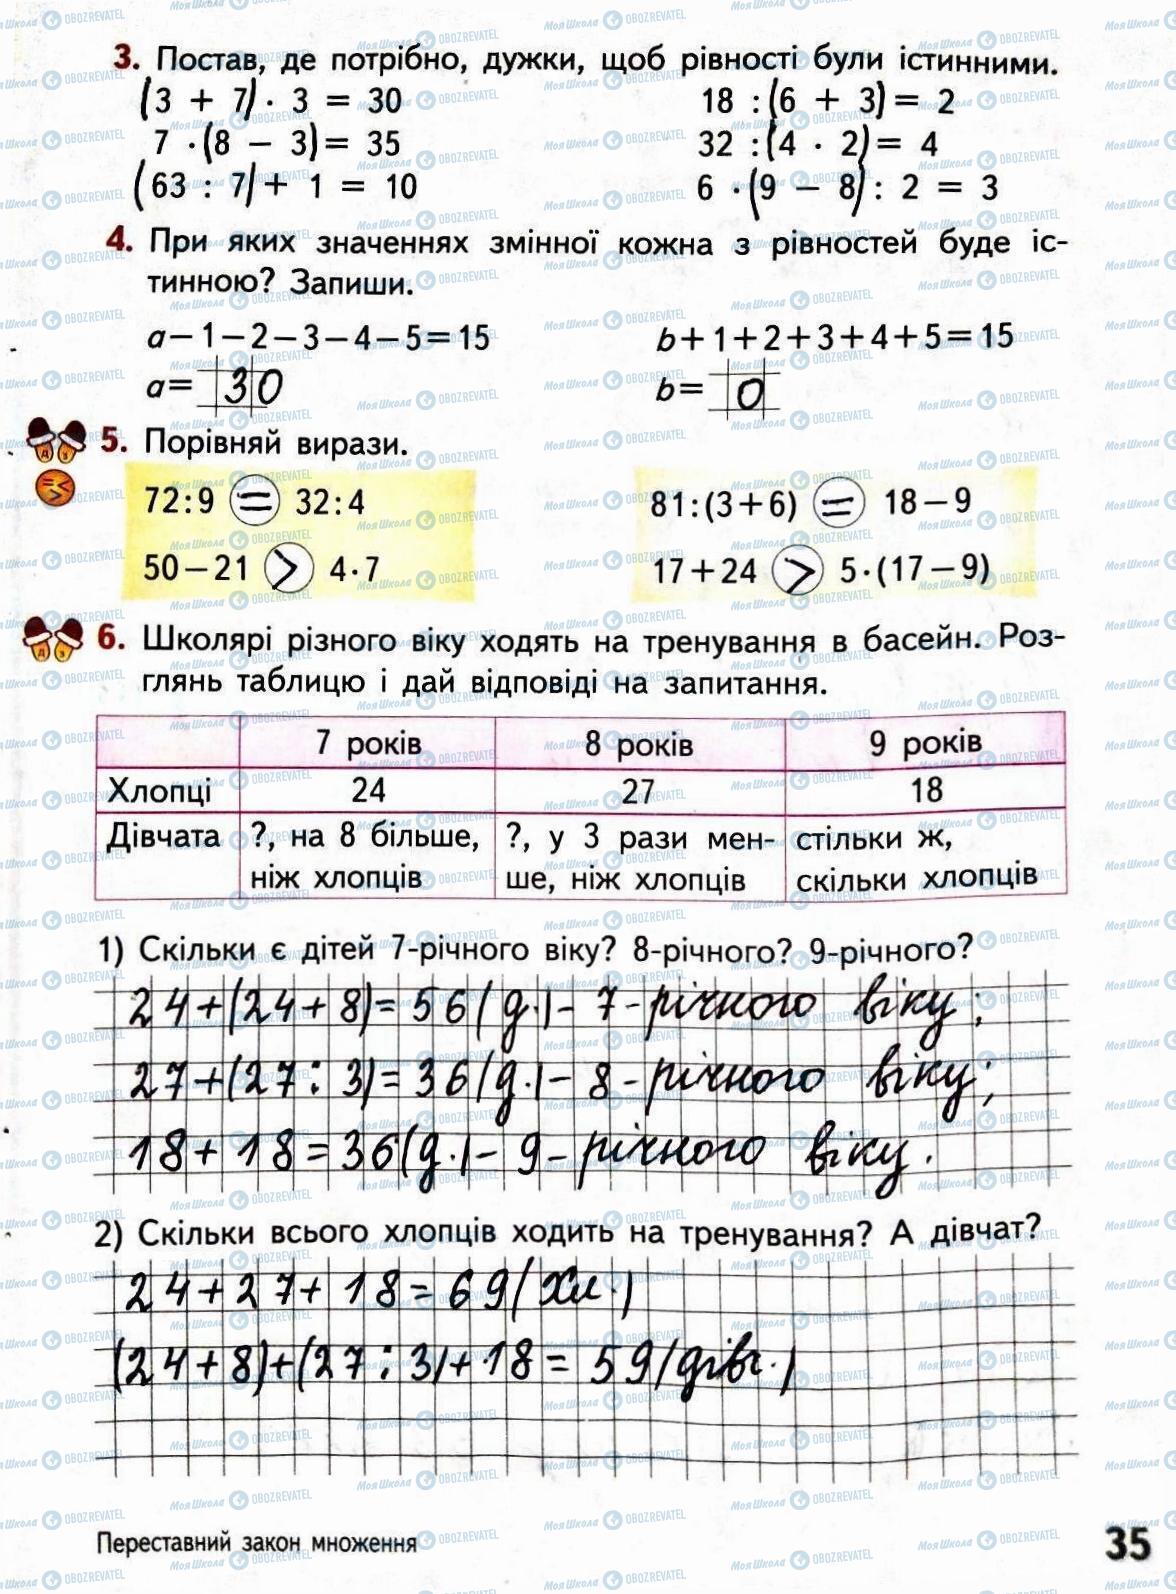 3. Постав, де потрібно, дужки, щоб рівності були істинними.
(3 + 7) · 3 = 30
18 : (6 + 3) = 2
7 · (8 − 3) = 35
32 : (4 · 2) = 4
(63 : 7) + 1 = 10
6 · (9 − 8) : 2 = 3
4. При яких значеннях змінної кожна з рівностей буде іс-
тинною? Запиши.
a−1−2−3−4−5=15
b+1+2+3+4+5=15
a= 30
b= 0
5. Порівняй вирази.
72:9 = 32:4
81:(3+6) = 18−9
50−21 > 4·7
17+24 > 5·(17−9)
6. Школярі різного віку ходять на тренування в басейн. Роз-
глянь таблицю і дай відповіді на запитання.
7 років 8 років 9 років
Хлопці 24 27 18
Дівчата ?, на 8 більше, ?, у 3 рази мен- стільки ж,
ніж хлопців ше, ніж хлопців скільки хлопців
1) Скільки є дітей 7-річного віку? 8-річного? 9-річного?
24+(24+8)=56(д.)-7-річного віку;
27+(27:3)=36(д.)-8-річного віку;
18+18=36(д.)-9-річного віку.
2) Скільки всього хлопців ходить на тренування? А дівчат?
24+27+18=69(хл.)
(24+8)+(27:3)+18=59(дівч.)
Переставний закон множення
35
МояШкола OBOZREVATEL